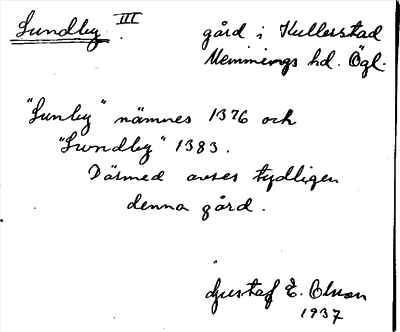 Lundby III gård i Kullerstad
Memmings hd. Ögl.
"Lunby" nämnes 1376 och
"Lwndby" 1383.
Därmed avses tydligen
denna gård.
Gustaf E. Olsson
1937